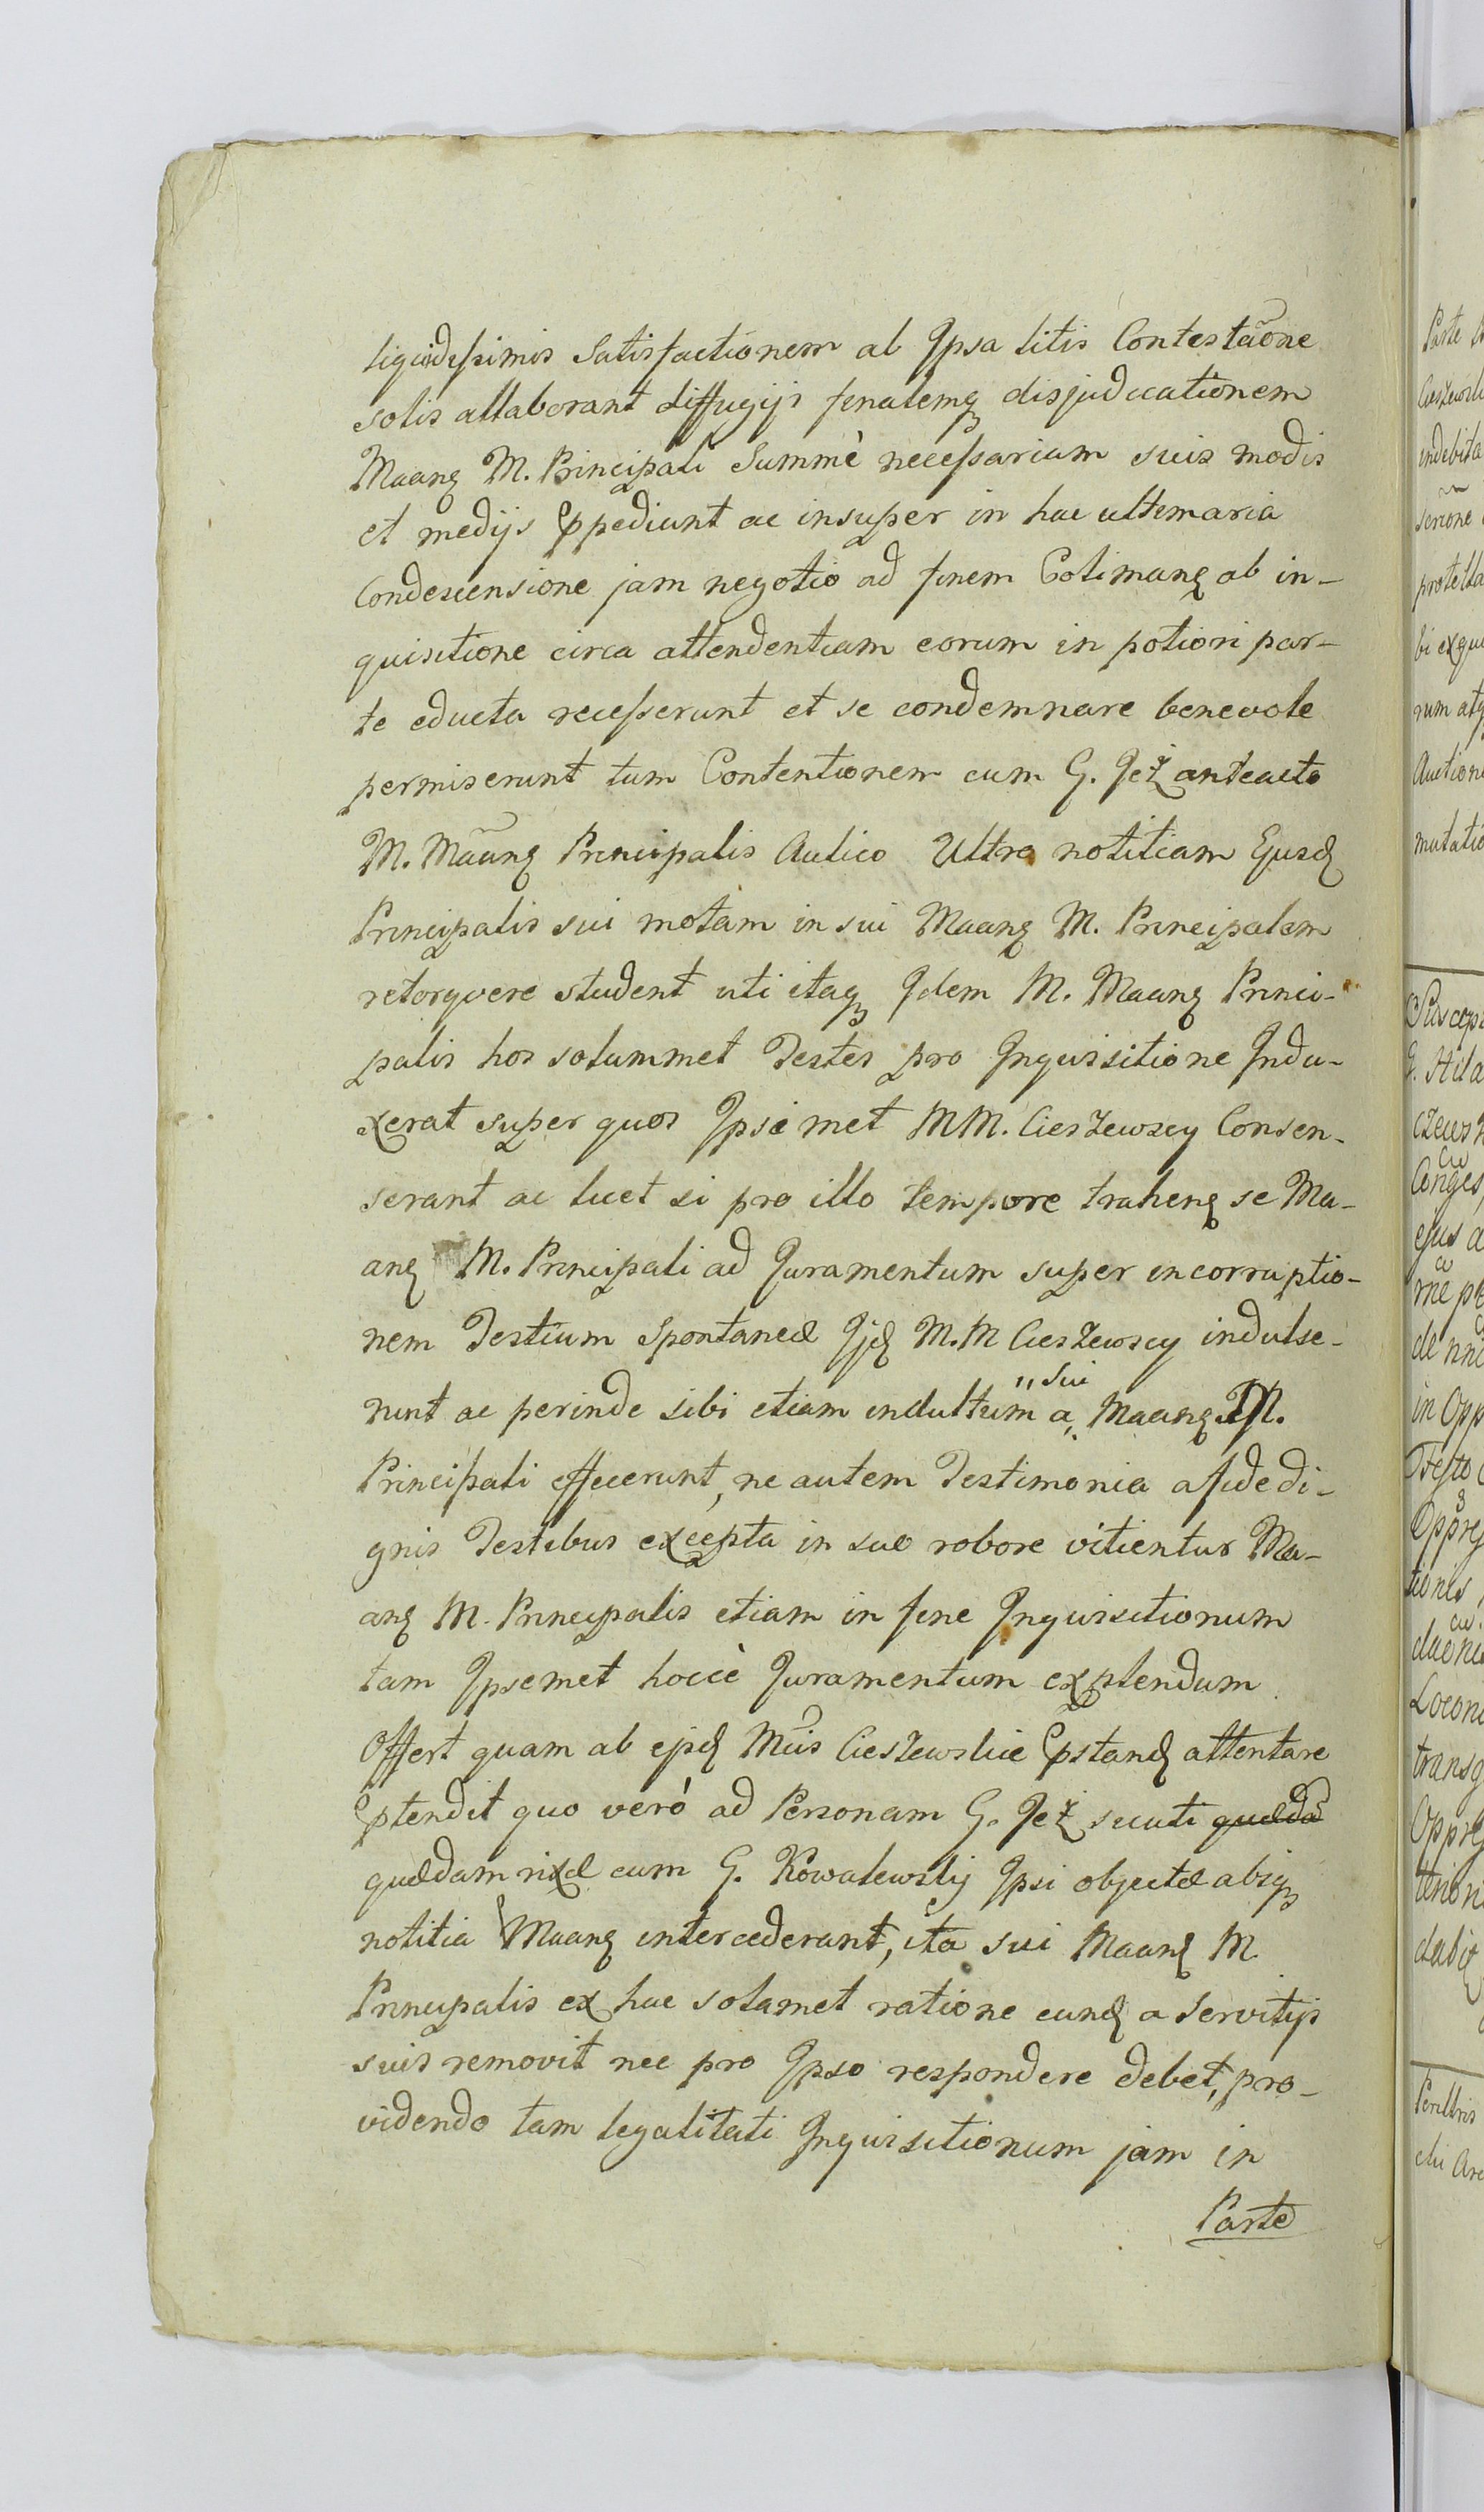 liquidissimis Satisfactionem ab Ipsa litis Contestaõne
solis allaborant diffugijs finalemq disjudicationem
Maanq M. Principali Summè necessariam suis modis
et medijs ppediunt ac insuper in hac ultimaria
Condescensione jam negotio ad finem Colimanq ab in-
quisitione circa attendentiam eorum in potiori par-
te educta recesserunt et se condemnare benevole
permiserunt tum Contentionem cum G. Jeż anteacto
M. Maanq Principalis Aulico Ultra notitiam Ejusd
Principalis sui motam in sui Maanq M. Principalem
retorqvere student uti itaq Idem M. Maanq Princi-
palis hos solummet Testes pro Inquisitione Indu-
xerat super quos Ipsimet MM. Cieszewscy Consen-
serant ac licet si pro illo tempore trahenq se Ma-
anq M. Principali ad Juramentum super incorruptio-
nem Testium Spontaneæ Ijd M. M Cieszewscy indulse-
runt ac perinde sibi etiam indultum a " sui Maanq M.
Principali effecerunt, ne autem Testimonia a fide di-
gnis Testibus excepta in suo robore vitientur Ma-
anq M. Principalis etiam in fine Inquisitionum
tam Ipsemet hoccè Juramentum explendum
Offert quam ab ejsd Mcis Cieszewskie pstand attentare
ptendit quo verò ad Personam G. Jeż sicuti quædã
quædam rixæ cum G. Kowalewskij Ipsi objectæ absq
notitia Maanq intercederant, ita sui Maanq M.
Principalis ex hac solamet ratione eund a Servitijs
suis removit nec pro Ipso respondere debet, pro-
videndo tam legalitati Inquisitionum jam in
Parte